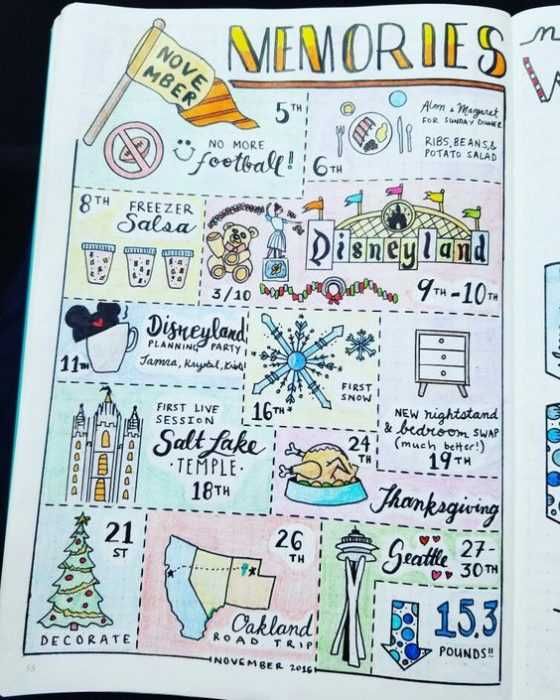 NOVE
MBER
MEMORIES
5TH
NO MORE
football!
6TH
FOR SUNDAY DINNER
RIBS, BEANS, &
POTATO SALAD
8TH FREEZER
Salsa
3/10
Disneyland
9TH-10TH
11TH
Disneyland
PLANNING PARTY
Tamra, Krystal,
16TH
FIRST
SNOW
NEW nightstand
& bedroom SWAP
(much better!)
19TH
FIRST LIVE
SESSION
Salt Lake
·TEMPLE·
18TH
24
TH
Thanksgiving
21
ST
DECORATE
26
TH
Oakland
ROAD TRIP
Seattle 27-
30TH
15.3
POUNDS!!
NOVEMBER 2016